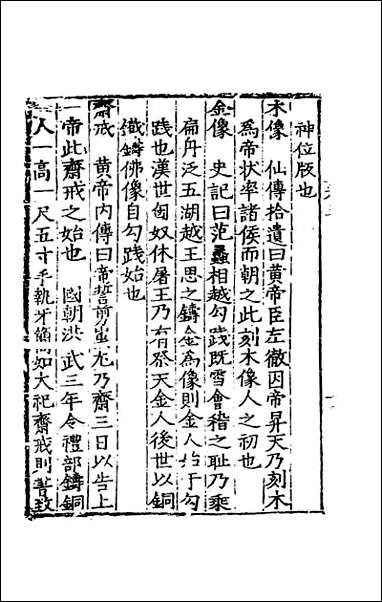 神位版也
木像　仙傳拾遺曰黃帝臣左徹因帝昇天乃刻木
爲帝狀率諸侯而朝之此刻木像人之初也
金像　史記曰范蠡相越勾踐既雪會稽之耻乃乘
扁舟泛五湖越王思之鑄金爲像則金人始于勾
踐也漢世匈奴休屠王乃有祭天金人後世以銅
鐵鑄佛像自勾踐始也
齋戒　黃帝內傳曰帝誓剪蚩尤乃齋三日以告上
帝此齋戒之始也　國朝洪武三年令禮部鑄銅
人一高一尺五寸手執牙簡如大祀齋戒則書致